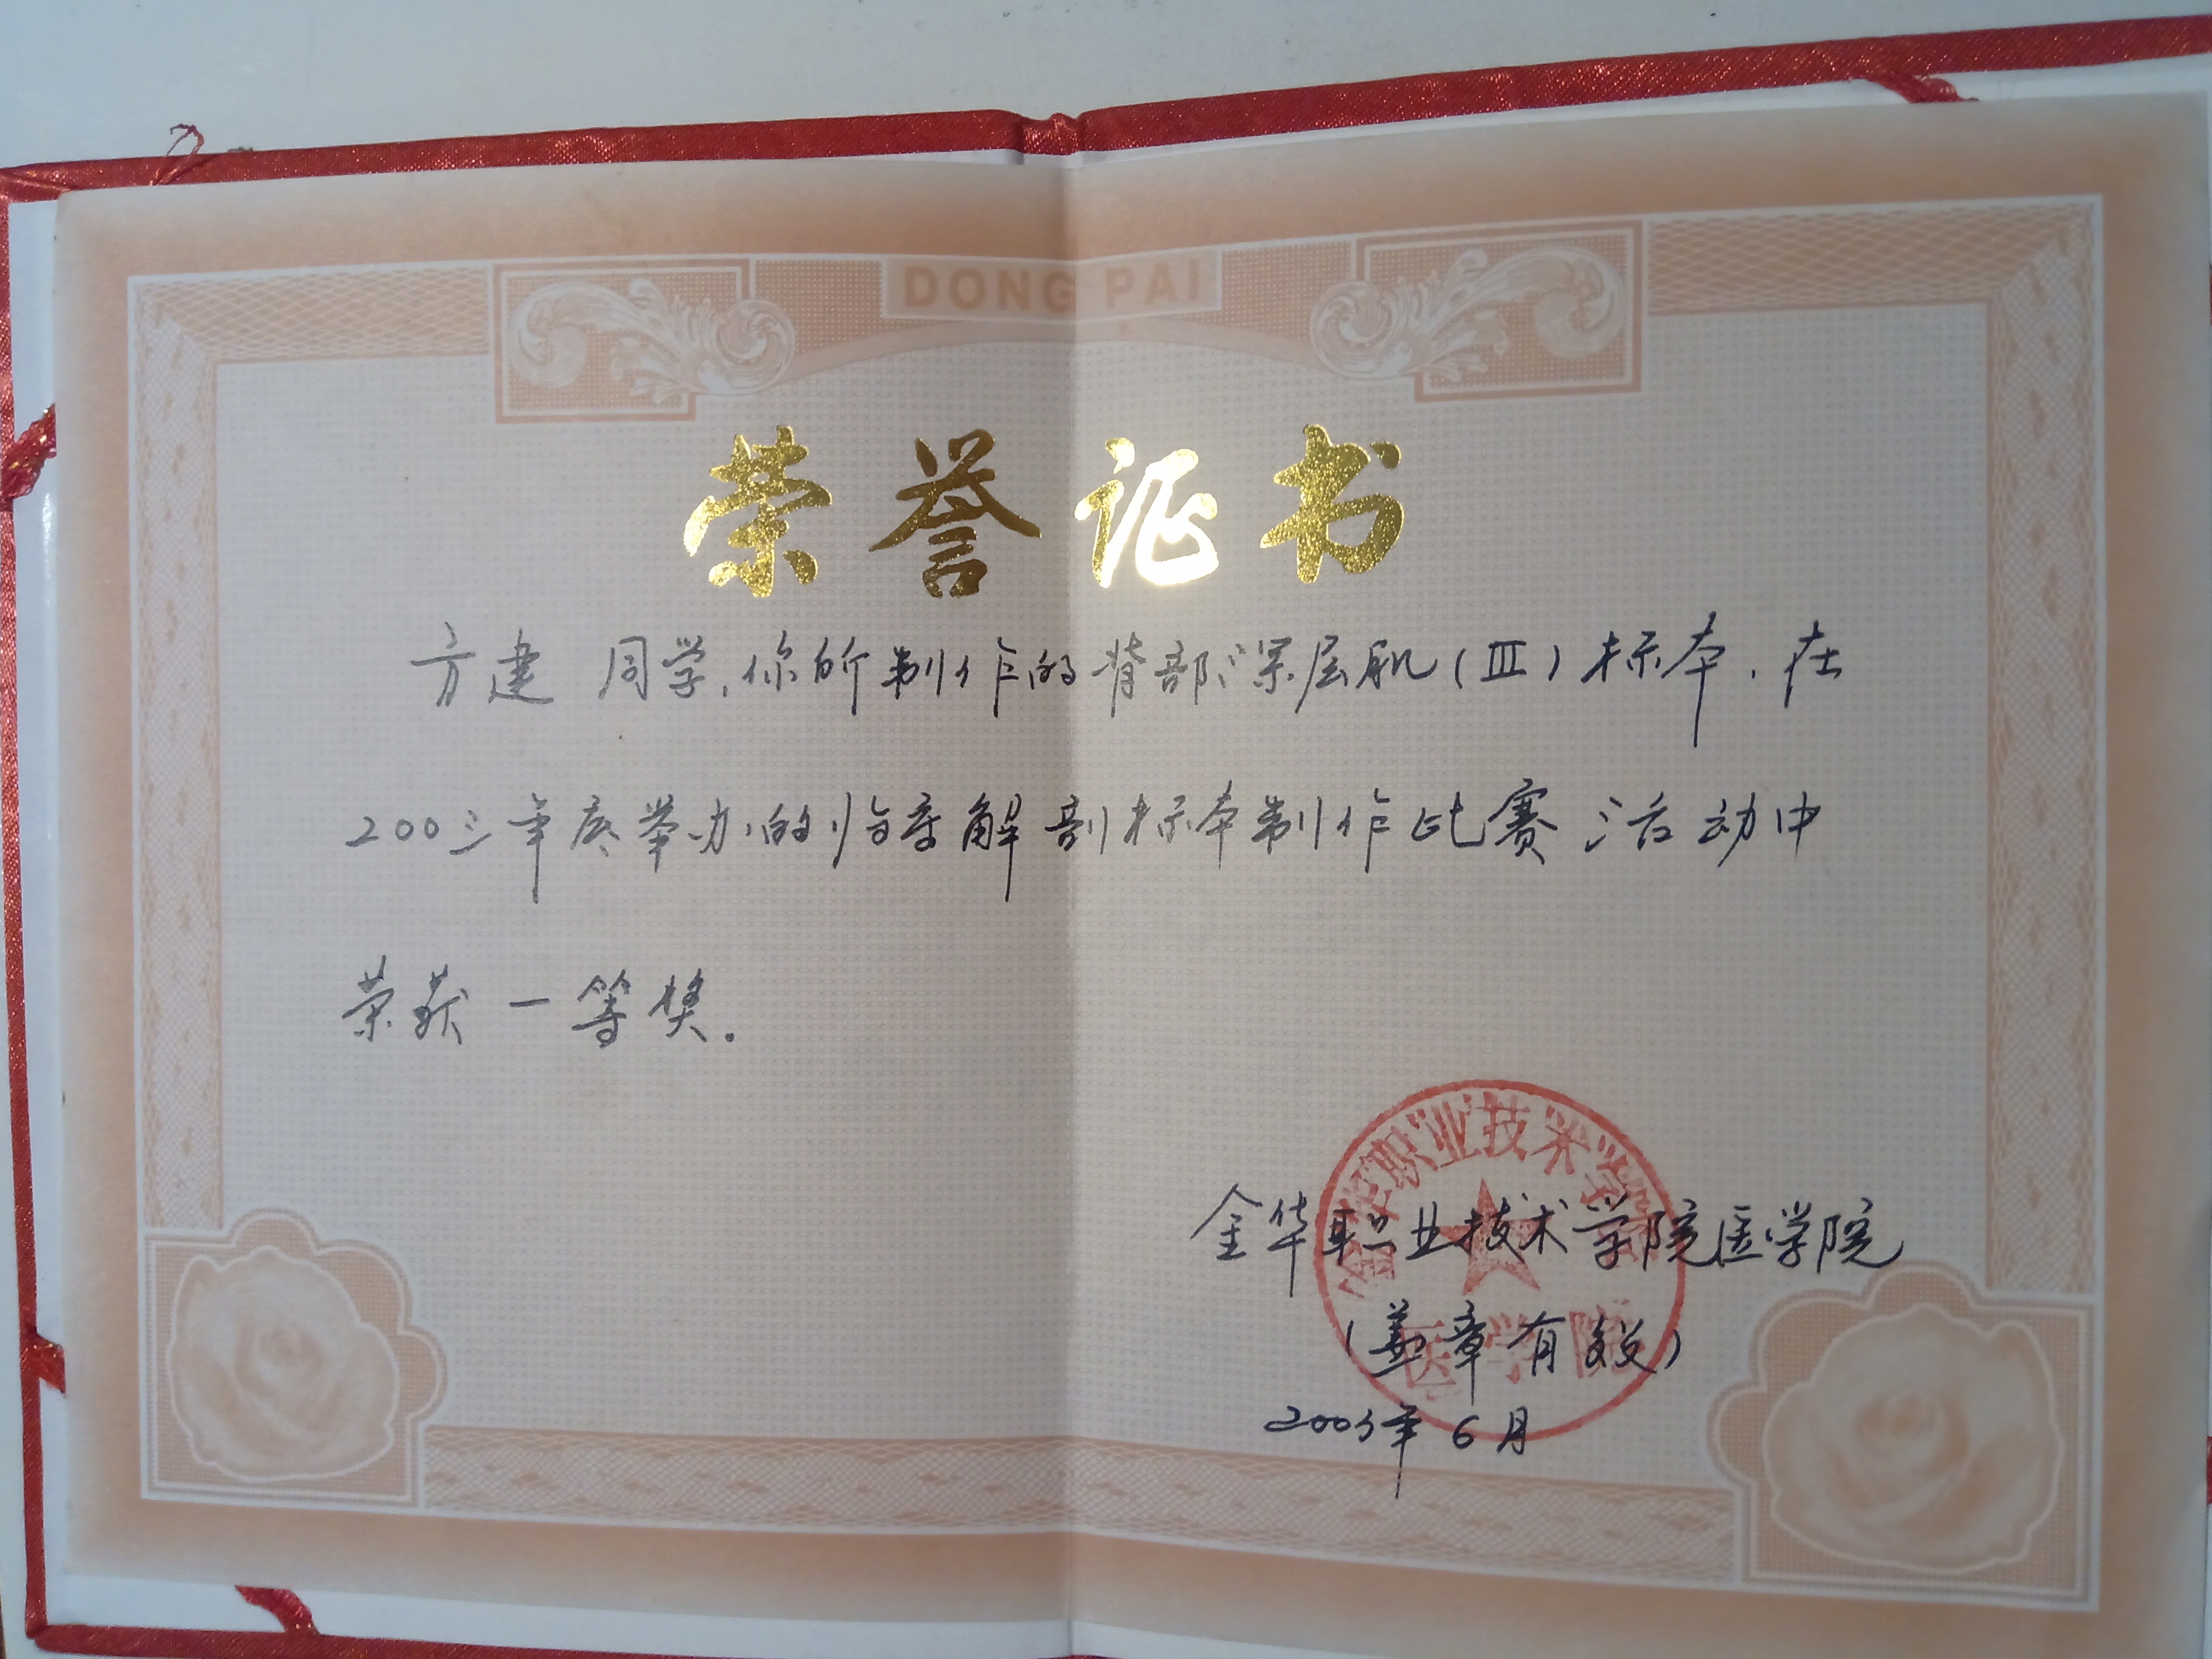 DONG PAI
荣誉证书
方建 同学,你所制作的背部深层肌(Ⅲ)标本,在
2003年度举办的临床解剖标本制作比赛活动中
荣获一等奖。
金华职业技术学院
医学院
金华职业技术学院医学院
(盖章有效)
2003年6月